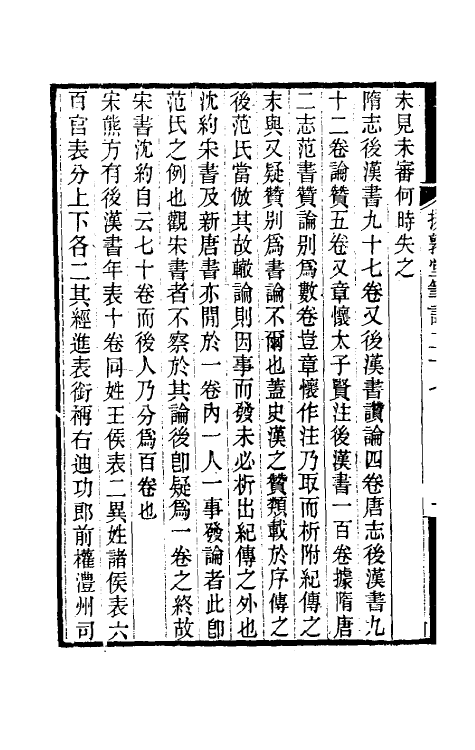 未見未審何時失之
隋志後漢書九十七卷又後漢書讚論四卷唐志後漢書九
十二卷論贊五卷又章懷太子賢注後漢書一百卷據隋唐
二志范書贊論別爲數卷豈章懷作注乃取而析附紀傳之
末與又疑贊别爲書論不爾也蓋史漢之贊類載於序傳之
後范氏當倣其故轍論則因事而發未必析出紀傳之外也
沈約宋書及新唐書亦閒於一卷內一人一事發論者此卽
范氏之例也觀宋書者不察於其論後卽疑爲一卷之終故
宋書沈約自云七十卷而後人乃分爲百卷也
宋熊方有後漢書年表十卷同姓王侯表二異姓諸侯表六
百官表分上下各二其經進表銜稱右迪功郎前權澧州司